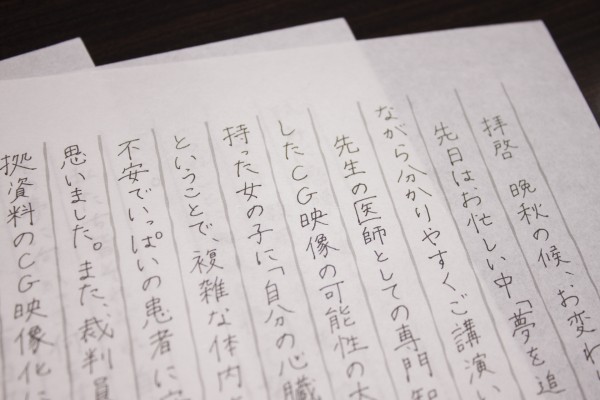 拝啓　晩秋の候、お変わ
先日はお忙しい中「夢を追
ながら分かりやすくご講演い
先生の医師としての専門知
したCG映像の可能性の大
持った女の子に「自分の心臓
ということで、複雑な体内
不安でいっぱいの患者に安
思いました。また、裁判員
拠資料のCG映像化に